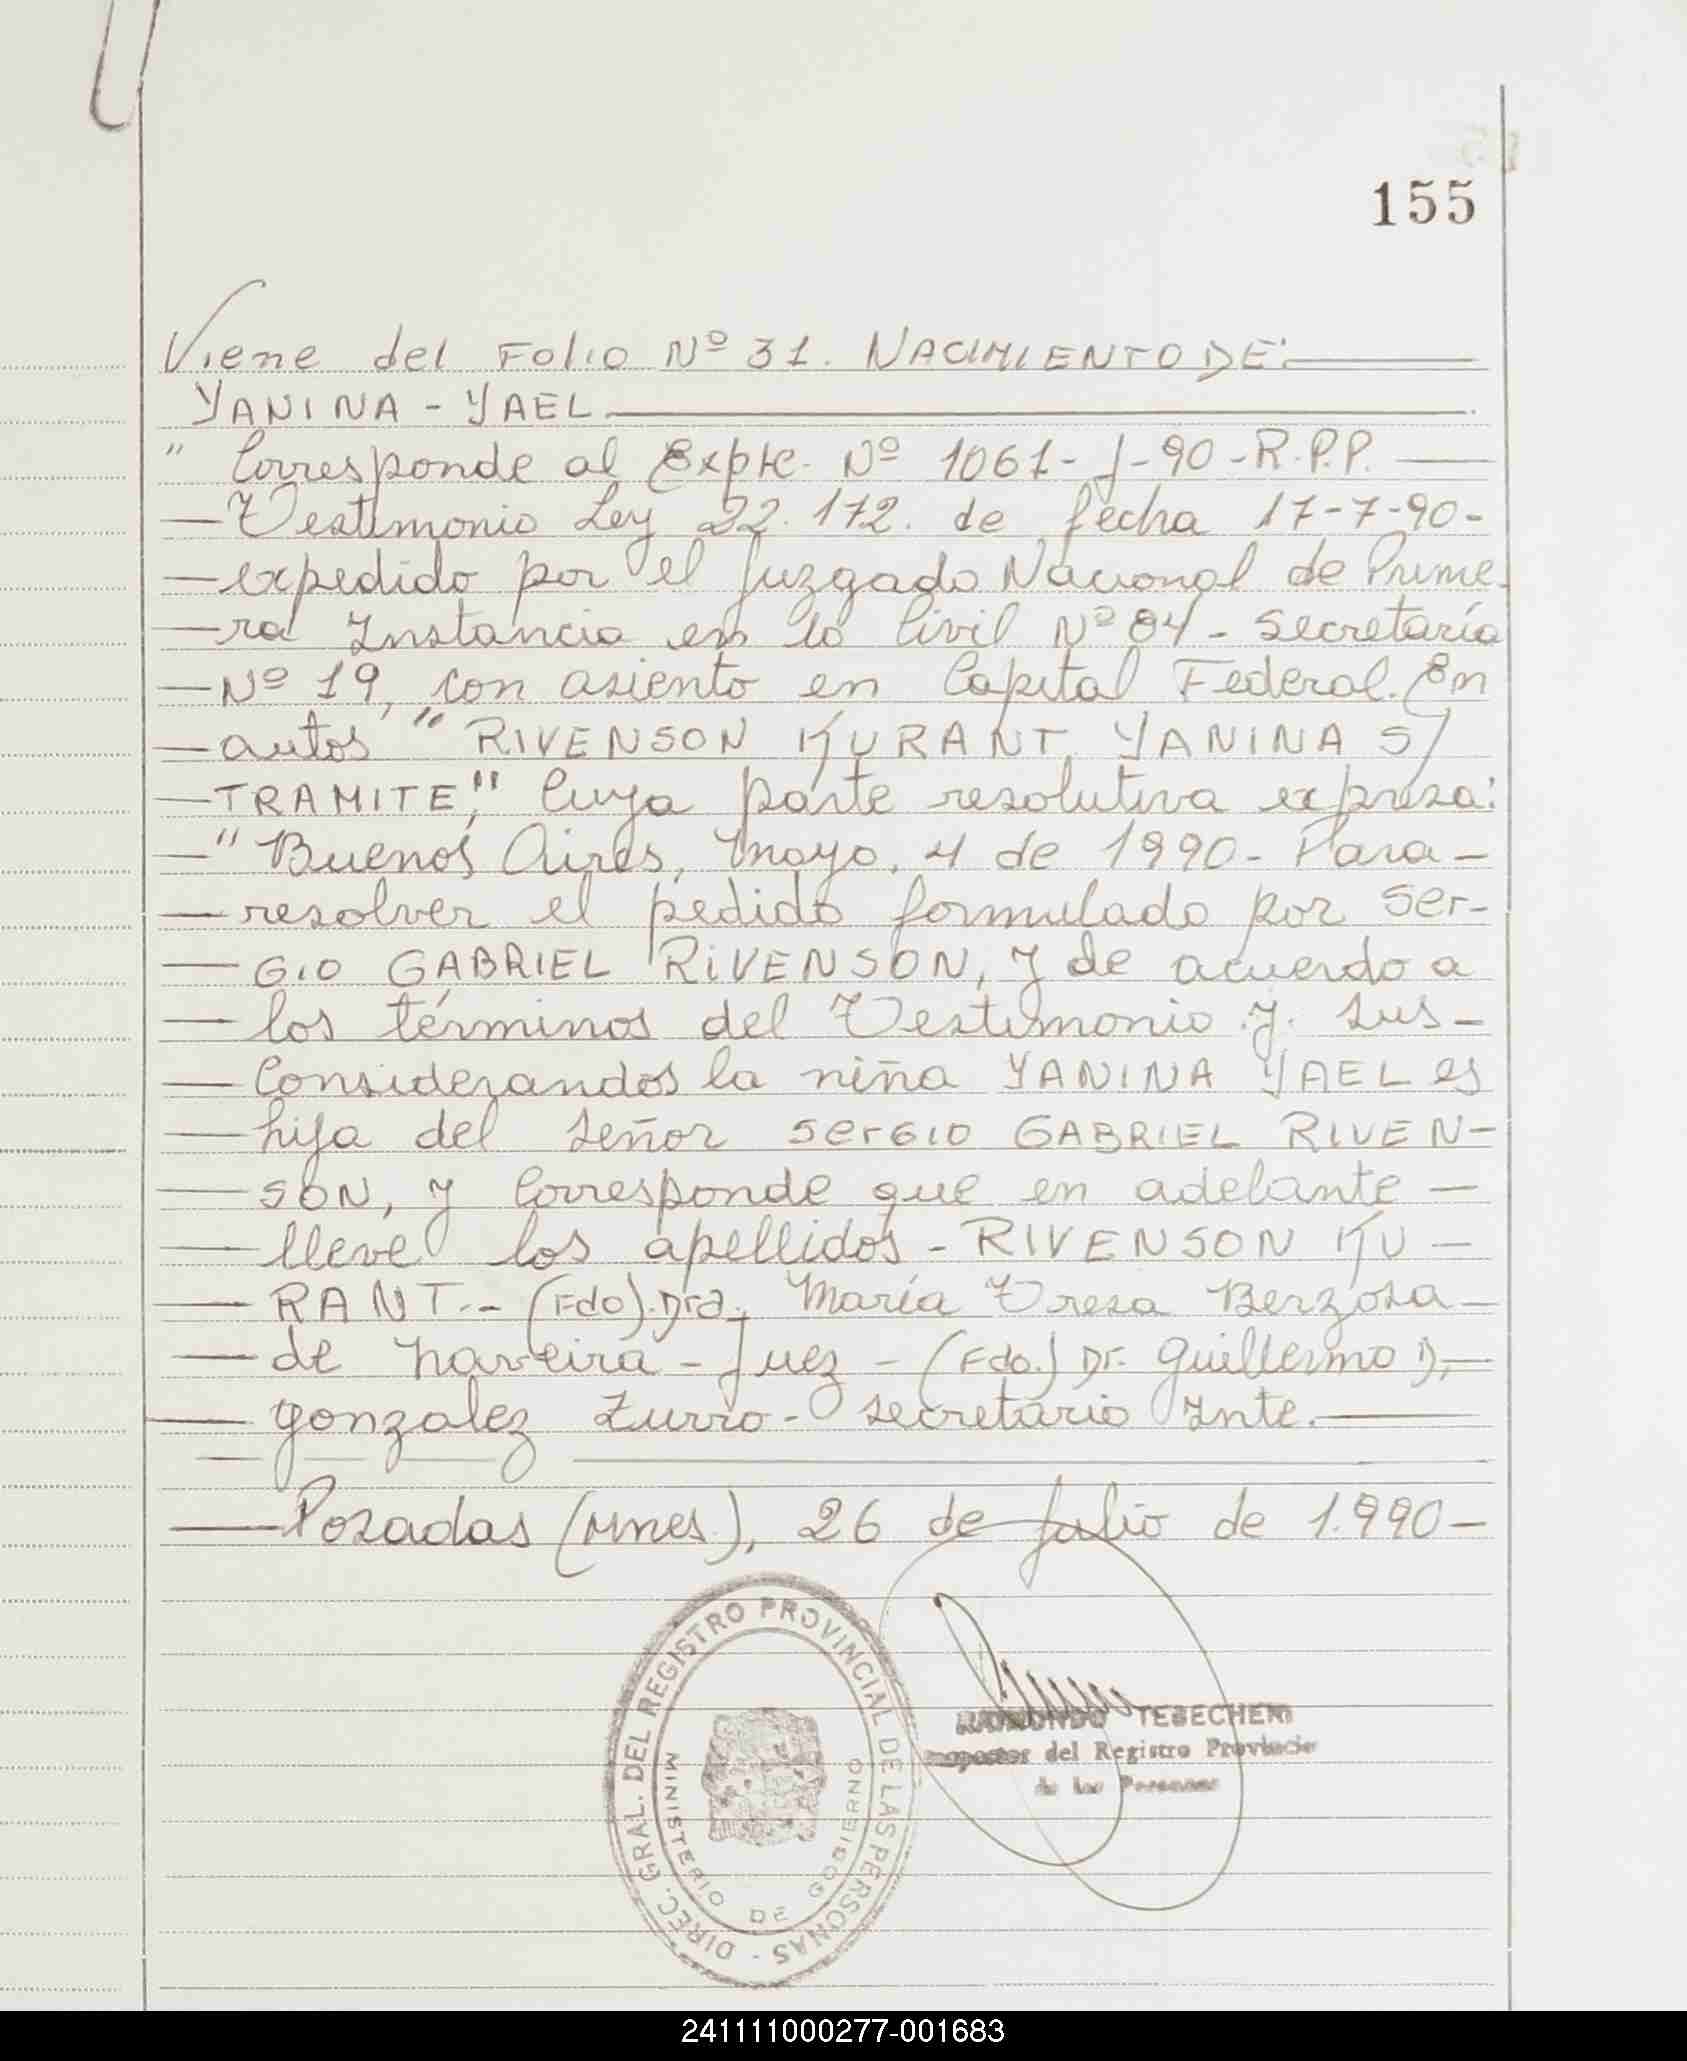 155
Viene del Folio Nº 31. NACIMIENTO DE:
YANINA - YAEL
" Corresponde al Expte. Nº 1061-J-90-R.P.P.
Testimonio Ley 22.172. de fecha 17-7-90-
expedido por el Juzgado Nacional de Prime-
ra Instancia en lo Civil Nº 84 - Secretaría
Nº 19, con asiento en Capital Federal. En
autos " RIVENSON KURANT YANINA S/
TRAMITE," Cuya parte resolutiva expresa:
" Buenos Aires, Mayo, 4 de 1990- Para-
resolver el pedido formulado por Ser-
GIO GABRIEL RIVENSON, y de acuerdo a
los términos del Testimonio y. sus-
Considerandos la niña YANINA YAEL es
hija del señor SERGIO GABRIEL RIVEN-
SON, y Corresponde que en adelante -
lleve los apellidos - RIVENSON KU-
RANT.- (Fdo). Dra. María Tresa Berzosa-
de Naveira - Juez - (Fdo.) Dr. Guillermo D.
Gonzalez Zurro - Secretario Inte.
Posadas (Mnes.), 26 de Julio de 1.990-
DIREC. GRAL. DEL REGISTRO PROVINCIAL DE LAS PERSONAS -
MINISTERIO DE GOBIERNO
RAIMUNDO TEBECHERI
del Registro Provincia
de las Personas
241111000277-001683